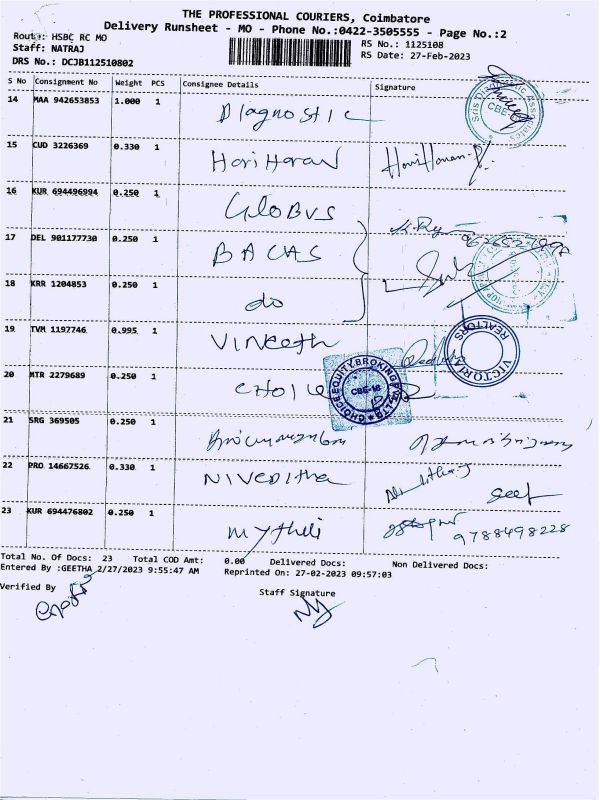 THE PROFESSIONAL COURIERS, Coimbatore
Delivery Runsheet - MO - Phone No.:0422-3505555 - Page No.:2
Route: HSBC RC MO
RS No.: 1125108
Staff: NATRAJ
RS Date: 27-Feb-2023
DRS No.: DCJB112510802
S No Consignment No Weight PCS Consignee Details Signature
14 MAA 942653853 1.000 1 Diagnostic
CBE
15 CUD 3226369 0.330 1 Hari Haran Hari Haran
16 KUR 694496994 0.250 1 GLOBUS
17 DEL 901177730 0.250 1 BACAS
18 KRR 1204853 0.250 1 do
19 TVM 1197746 0.995 1 Vineeth
VICTORIA REALTORS
20 MTR 2279689 0.250 1 CHOICE
CHOICE EQUITY BROKING PVT LTD
CBE-18
21 SRG 369505 0.250 1
22 PRO 14667526 0.330 1 Niveditha
23 KUR 694476802 0.250 1 Mythili
9788498228
Total No. Of Docs: 23 Total COD Amt: 0.00 Delivered Docs: Non Delivered Docs:
Entered By :GEETHA 2/27/2023 9:55:47 AM Reprinted On: 27-02-2023 09:57:03
Verified By Staff Signature